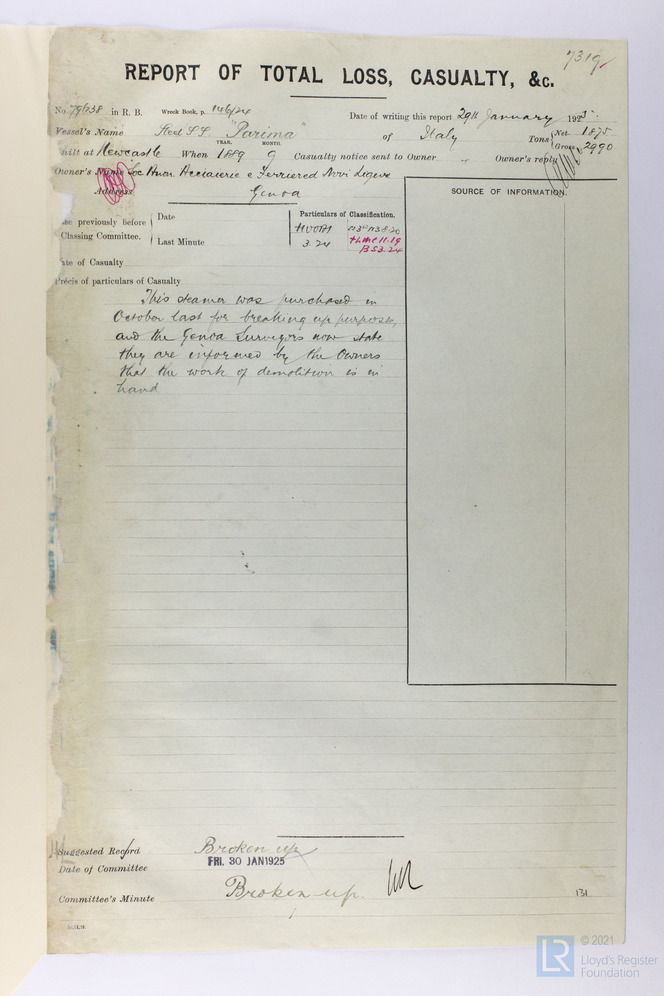 7319
REPORT OF TOTAL LOSS, CASUALTY, &c.
No. 79638 in R. B. Wreck Book, p. 146/24 Date of writing this report 29th January 1925.
Vessel's Name Steel SS "Parima" of Italy Tons Net 1875
Gross 2990
built at Newcastle When YEAR. 1889 MONTH. 9 Casualty notice sent to Owner „ Owner's reply
Owner's Name Soc Anon. Acciaierie e Ferriere di Novi Ligure
Address Genoa
SOURCE OF INFORMATION.
previously before Classing Committee.
Date
Last Minute
Particulars of Classification.
3.24
BS3.24
Date of Casualty
Précis of particulars of Casualty
This steamer was purchased in
October last for breaking up purposes,
and the Genoa Surveyors now state
they are informed by the Owners
that the work of demolition is in
hand
Suggested Record Broken up
Date of Committee FRI. 30 JAN 1925
Committee's Minute Broken up.
131
© 2021
LR
Lloyd's Register
Foundation